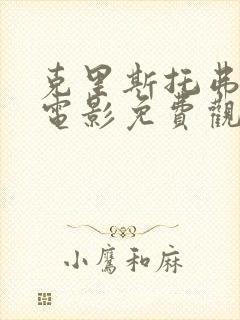 克里斯托弗
電影免費觀
小鷹和麻